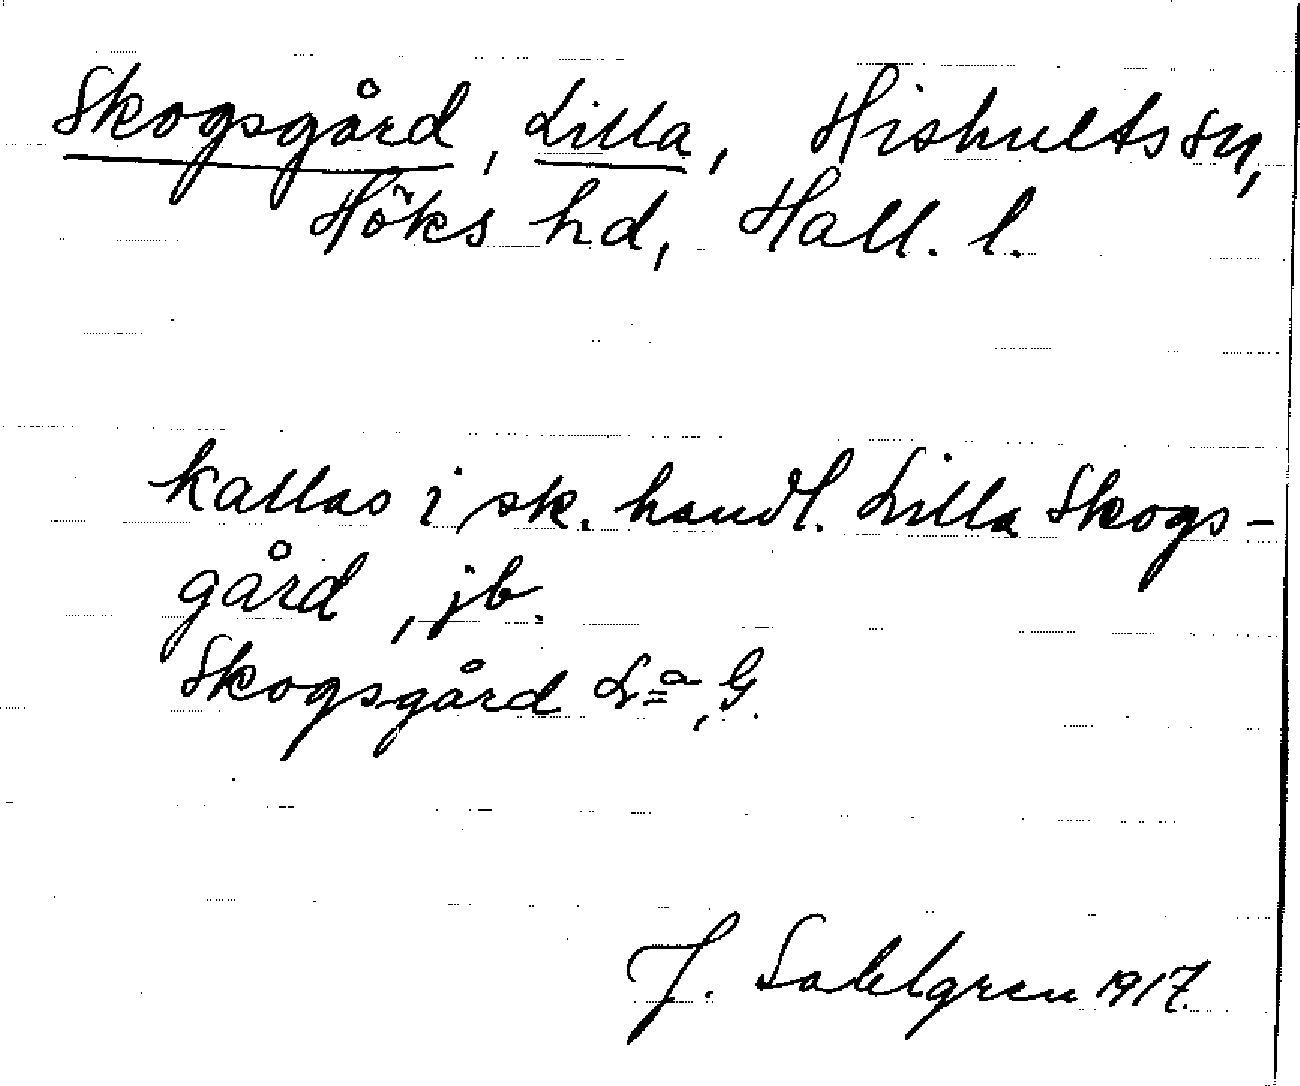 Skogsgård, Lilla, Hishults sn,
Höks hd, Hall. l.
kallas i sk. handl. Lilla Skogs-
gård, jb.
Skogsgård La, G.
J. Sahlgren 1917.